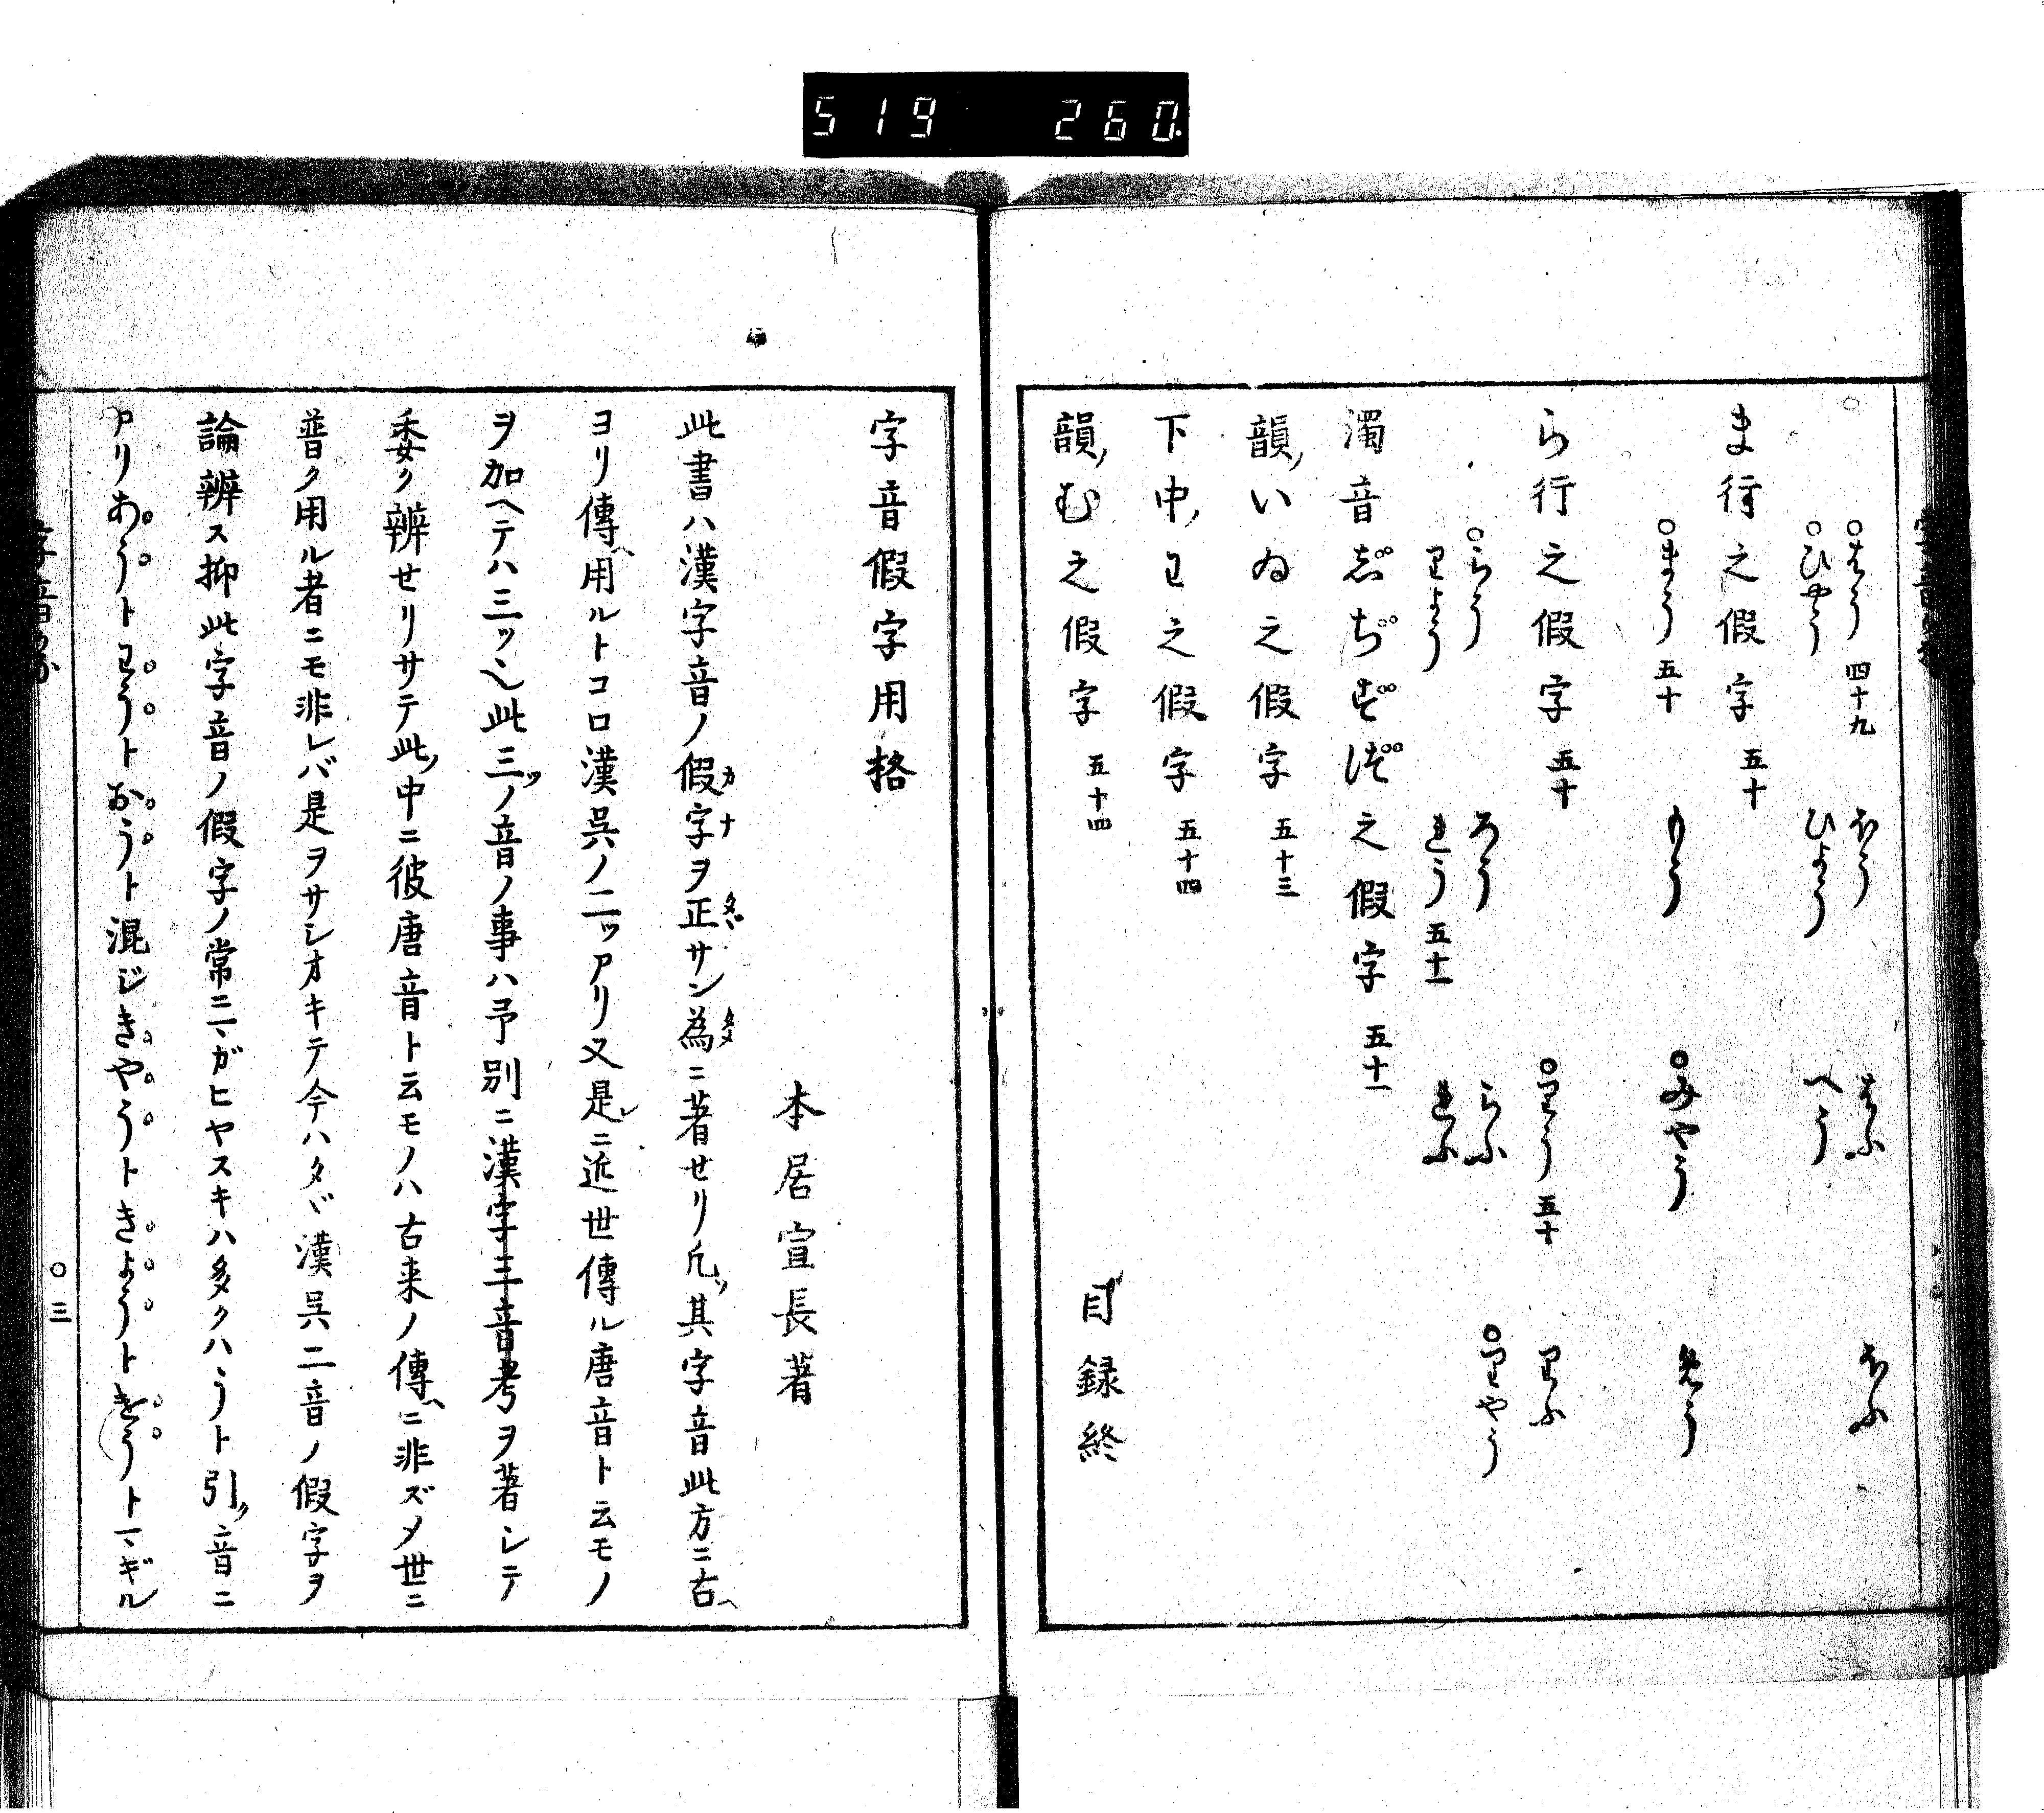 519 260.
○はう 四十九 ほう はふ ほふ
○ひやう ひよう へう
ま行之假字 五十
○まう 五十 もう ○みやう めう
ら行之假字 五十 ○りう 五十 りふ
○らう ろう らふ ○りやう
りよう れう 五十一 れふ
濁音じぢずづ之假字 五十一
韻ノいゐ之假字 五十三
下中ノわ之假字 五十四
韻ノむ之假字 五十四 目録終
字音假字用格
本居宣長著
此書ハ漢字音ノ假字ヲ正サン為ニ著セリ凡ッ其字音此方ニ古ヘ
ヨリ傳ヘ用ルトコロ漢呉ノ二ッアリ又是レニ近世傳ル唐音ト云モノ
ヲ加ヘテハ三ッ也此三ッノ音ノ事ハ予別ニ漢字三音考ヲ著シテ
委ク辨セリサテ此ノ中ニ彼唐音ト云モノハ古来ノ傳ヘニ非ズメ世ニ
普ク用ル者ニモ非レバ是ヲサシオキテ今ハタヾ漢呉二音ノ假字ヲ
論辨ス抑此字音ノ假字ノ常ニマガヒヤスキハ多クハうト引ク音ニ
アリあうトわうトおうト混ジきやうトきようトけうトマギル
○三